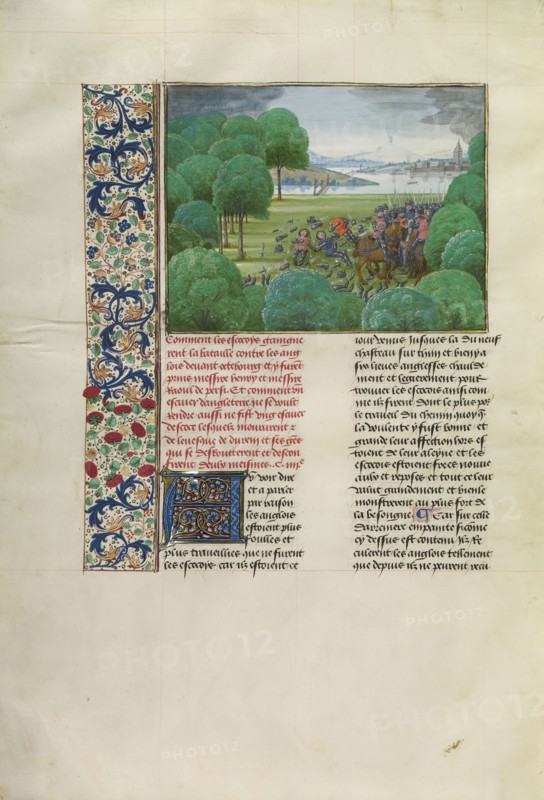 Comment les escocoys gaingne
rent la bataille contre les ang
lois devant ottebourg et y furent
prins messire henry et messire
Raoul de persi. Et comment un
escuier dangleterre ne se voult
rendre aussi ne fist ung escuier
descoce lesquelz moururent &
de levesque de durem et ses gens
qui se desrouterent et descon
firent deulx mesmes. C.
y voir dire
et a parler
par raison
les anglois
estoient plus
foullez et
plus travailliez que ne furent
les escocoys car ilz estoient ce
jour venus jusques la du neuf
chasteau sur thin et bien y a
lieues anglesses chaude
ment et legierement pour
trouver les escocois ainsi com
me ilz firent dont le plus par
le traveil du chemin quoy q
la voulente y fust bonne et
grande leur affection hors es
toient de leur alayne et les
escocois estoient frecs nouve
aulx et reposes et tout ce leur
valut grandement et bien le
monstrerent au plus fort de
la besongne. Car sur celle
darreniere empainte si comme
cy dessus est contenu ilz Re
culerent les anglois tellement
que depuis ilz ne peurent recu
PHOTO12
PHOTO12
PHOTO12
PHOTO12
PHOTO12